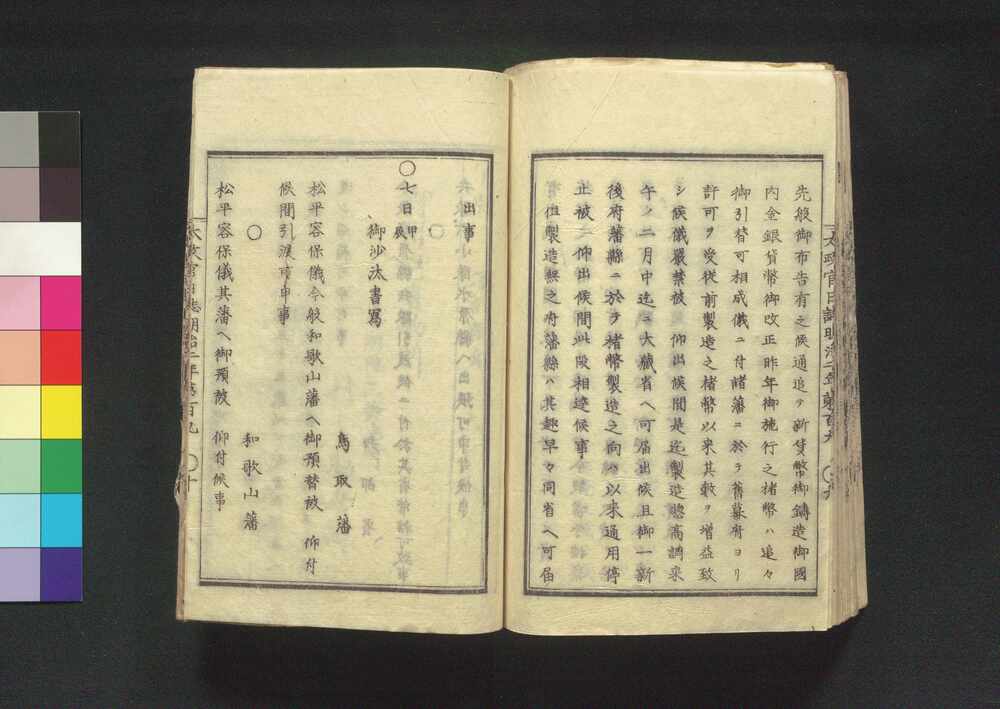 先般御布告有之候通追テ新貨幣御鑄造御國
内金銀貨幣御改正昨年御施行之楮幣ハ追々
御引替可相成儀ニ付諸藩ニ於テ舊幕府ヨリ
許可ヲ受従前製造之楮幣以来其數ヲ增益致
シ候儀嚴禁被 仰出候間是迄製造惣高調来
午ノ二月中迄ニ大藏省ヘ可届出候且御一新
後府藩縣ニ於テ楮幣製造之向ハ以来通用停
止被 仰出候間此段相達候事
但製造無之府藩縣ハ其趣早々同省ヘ可届
太政官日誌明治二年第百九 〇九
出事
〇七日甲辰
御沙汰書寫
鳥取藩
松平容保儀今般和歌山藩ヘ御預替被 仰付
候間引渡可申事
〇
和歌山藩
松平容保儀其藩ヘ御預被 仰付候事
太政官日誌明治二年第百九 〇十